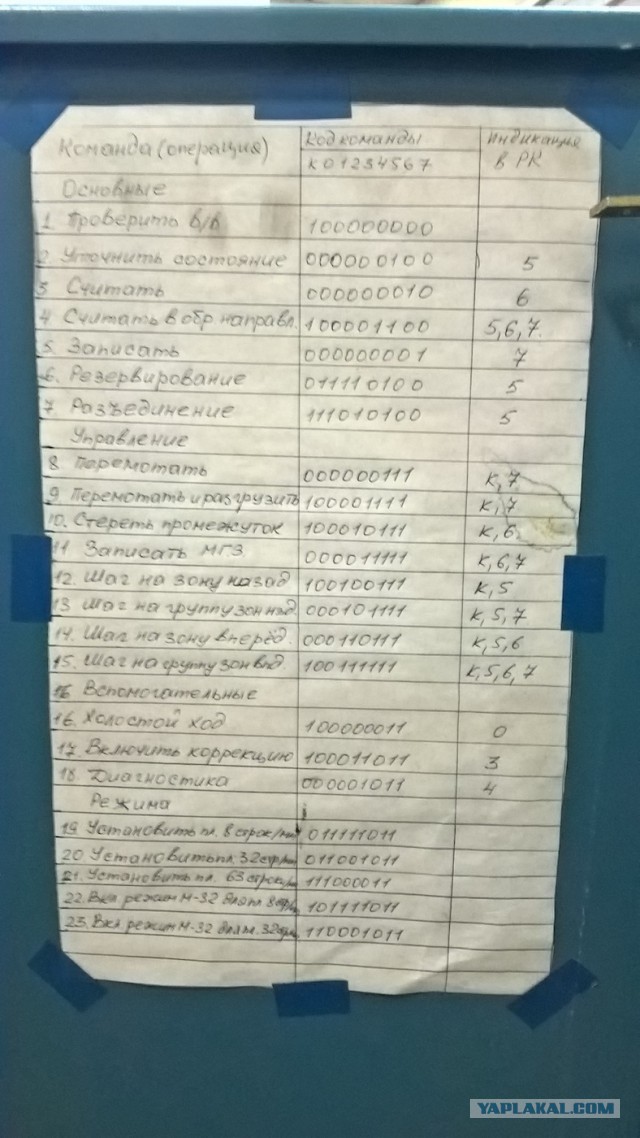 Команда (операция) Код команды Индикация
К01234567 в РК
Основные
1. Проверить в/в 100000000
2. Уточнить состояние 000000100 5
3 Считать 000000010 6
4. Считать в обр. направл. 100001100 5,6,7.
5. Записать 000000001 7
6. Резервирование 011110100 5
7. Разъединение 111010100 5
Управление
8. Перемотать 000000111 К,7
9. Перемотать и разгрузить 100001111 К,7
10. Стереть промежуток 100010111 К,6
11 Записать МГЗ 000011111 К,6,7
12. Шаг на зону назад 100100111 К,5
13. Шаг на группу зон нзд. 000101111 К,5,7
14. Шаг на зону вперёд. 000110111 К,5,6
15. Шаг на группу зон впд. 100111111 К,5,6,7
16 Вспомогательные
16. Холостой ход 100000011 0
17. Включить коррекцию 100011011 3
18. Диагностика 000001011 4
Режима
19. Установить пл. 8 строк/мм 011111011
20 Установить пл. 32 стр/мм 011001011
21. Установить пл. 63 строк/ 111000011
22. Вкл режим М-32 для пл. 8 101111011
23. Вкл режим М-32 32 110001011
YAPLAKAL.COM